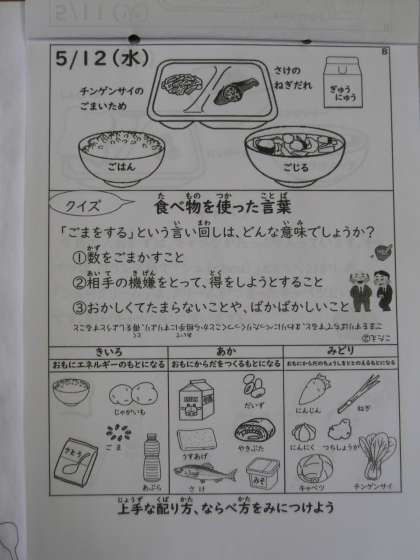 B
5/12(水)
チンゲンサイの
ごまいため
さけの
ねぎだれ
ぎゅう
にゅう
ごはん
ごじる
クイズ
食べ物を使った言葉
「ごまをする」という言い回しは、どんな意味でしょうか?
①数をごまかすこと
②相手の機嫌をとって、得をしようとすること
③おかしくてたまらないことや、ばかばかしいこと
こたえ②
きいろ
あか
みどり
おもにエネルギーのもとになる
おもにからだをつくるもとになる
おもにからだのちょうしをととのえるもとになる
じゃがいも
ごま
さとう
あぶら
だいず
うすあげ
やきぶた
さけ
みそ
にんじん
ねぎ
にんにく
つちしょうが
キャベツ
チンゲンサイ
上手な配り方、ならべ方をみにつけよう